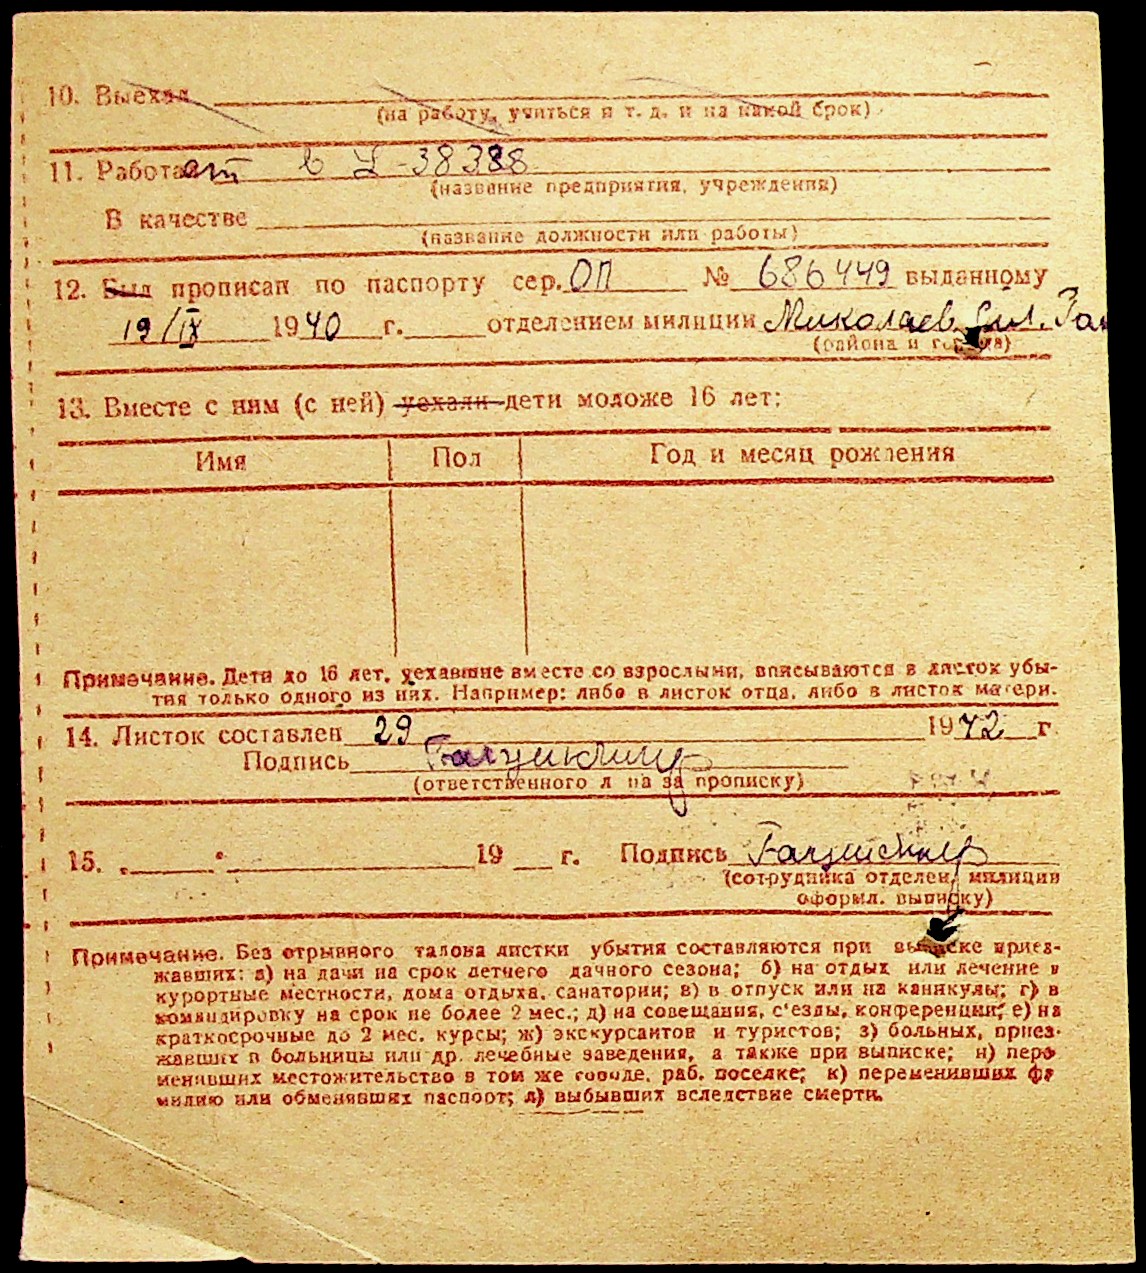 10. Выехал
(на работу, учиться и т. д. и на какой срок)
11. Работает в 38388
(название предприятия, учреждения)
В качестве
(название должности или работы)
12. Был прописан по паспорту сер. ОП № 686449 выданному
19/IX 1940 г. отделением милиции Миколаев
(района и города)
13. Вместе с ним (с ней) уехали дети моложе 16 лет:
Имя Пол Год и месяц рождения
Примечание. Дети до 16 лет, уехавшие вместе со взрослыми, вписываются в листок убы-
тия только одного из них. Например: либо в листок отца, либо в листок матери.
14. Листок составлен 29 1942 г.
Подпись
(ответственного л па за прописку)
15. 19 г. Подпись
(сотрудника отделен. милиции
оформл. выписку)
Примечание. Без отрывного талона листки убытия составляются при выписке приез-
жавших: а) на дачи на срок летнего дачного сезона; б) на отдых или лечение в
курортные местности, дома отдыха, санатории; в) в отпуск или на каникулы; г) в
командировку на срок не более 2 мес.; д) на совещания, с'езды, конференции; е) на
краткосрочные до 2 мес. курсы; ж) экскурсантов и туристов; з) больных, приез-
жавших в больницы или др. лечебные заведения, а также при выписке; и) пере
менивших местожительство в том же городе, раб. поселке; к) переменивших фа
милию или обменявших паспорт; л) выбывших вследствие смерти.